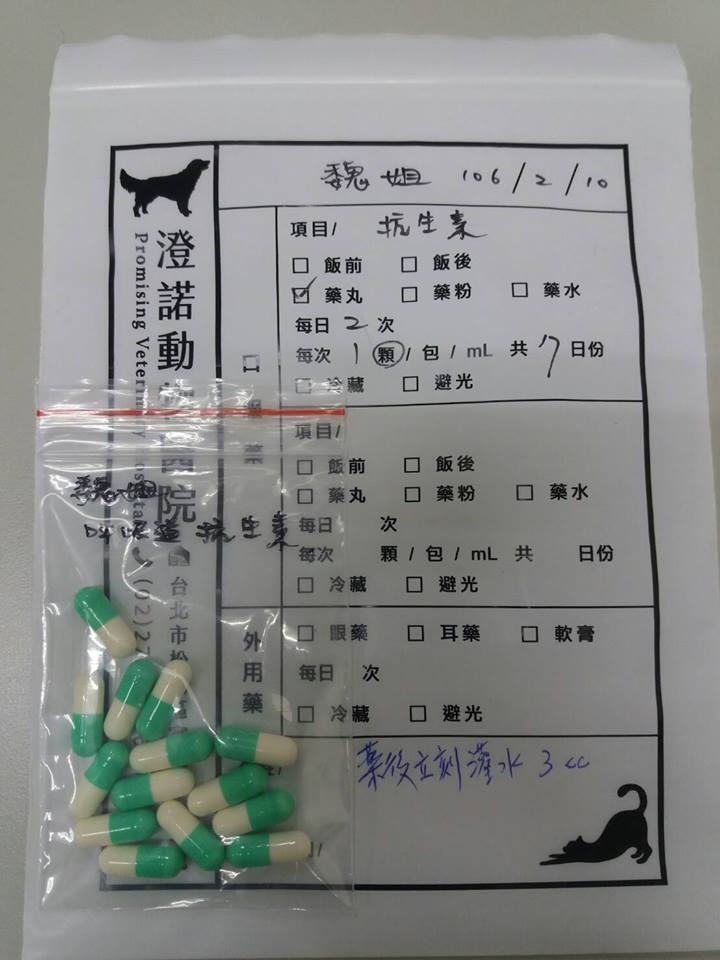 魏姐 106/2/10
澄諾動
院
Promising Veterin
(02)27
台北市松
項目/ 抗生素
☐ 飯前 ☐ 飯後
☑ 藥丸 ☐ 藥粉 ☐ 藥水
每日 2 次
每次 1 顆 / 包 / mL 共 7 日份
☐ 冷藏 ☐ 避光
項目/
☐ 飯前 ☐ 飯後
☐ 藥丸 ☐ 藥粉 ☐ 藥水
每日 次
每次 顆 / 包 / mL 共 日份
☐ 冷藏 ☐ 避光
外用藥
☐ 眼藥 ☐ 耳藥 ☐ 軟膏
每日 次
☐ 冷藏 ☐ 避光
藥後立刻灌水 3 cc
魏姐
呼吸道 抗生素